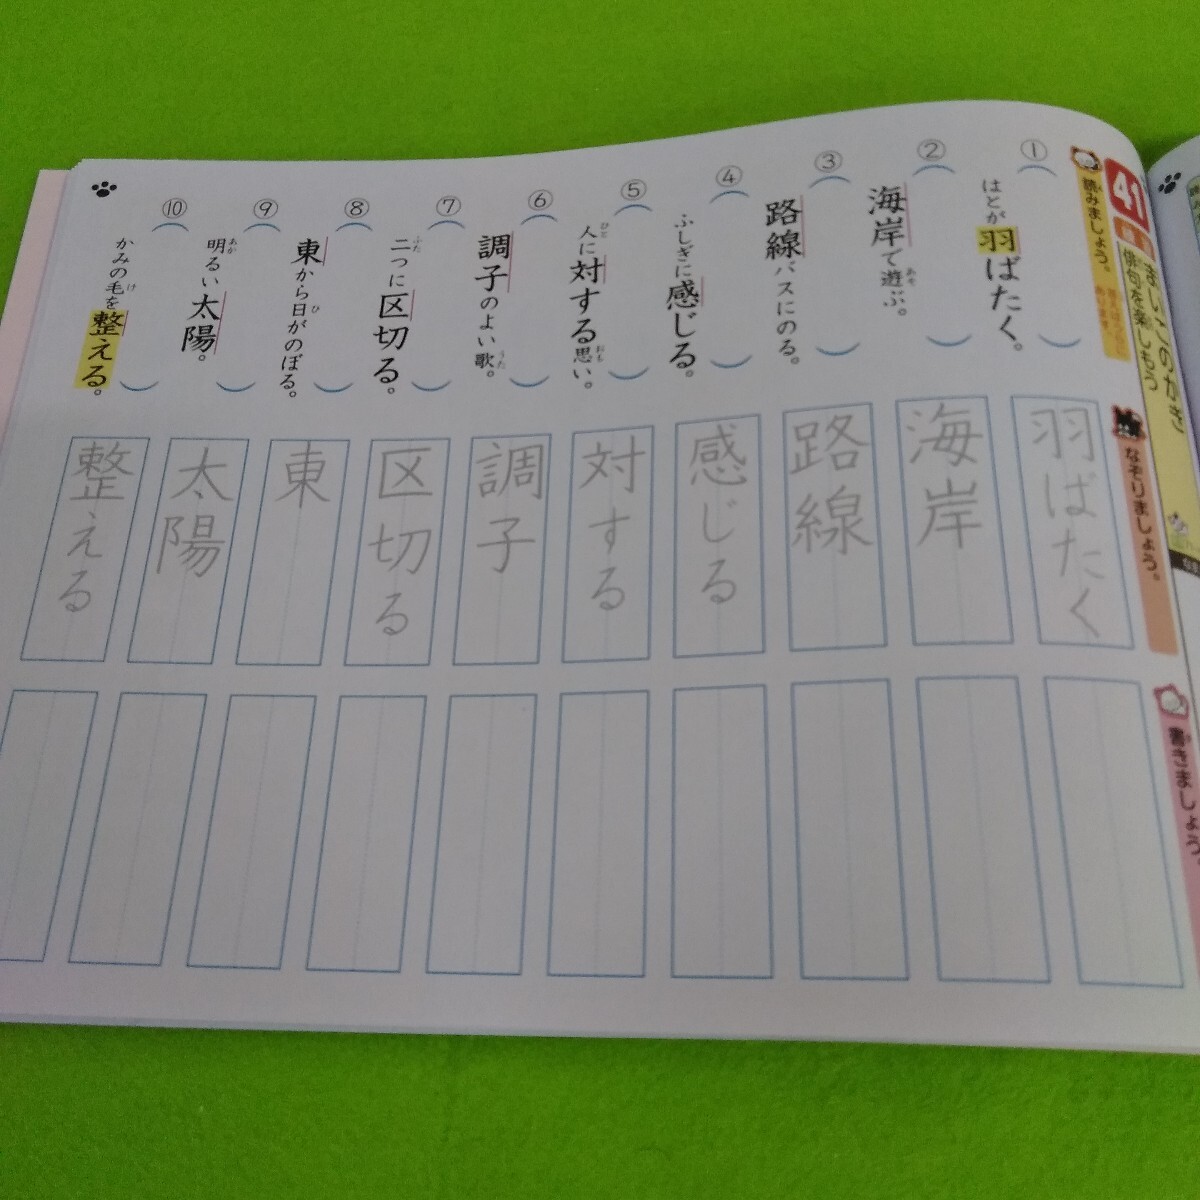 41
まいごのかぎ
俳句を楽しもう
読みましょう。
① はとが羽ばたく。
② 海岸で遊ぶ。
あそ
③ 路線バスにのる。
④ ふしぎに感じる。
⑤ 人に対する思い。
ひと
おも
⑥ 調子のよい歌。
うた
⑦ 二つに区切る。
ふた
⑧ 東から日がのぼる。
ひ
⑨ 明るい太陽。
あか
⑩ かみの毛を整える。
け
なぞりましょう。
羽ばたく
海岸
路線
感じる
対する
調子
区切る
東
太陽
整える
書きましょう。